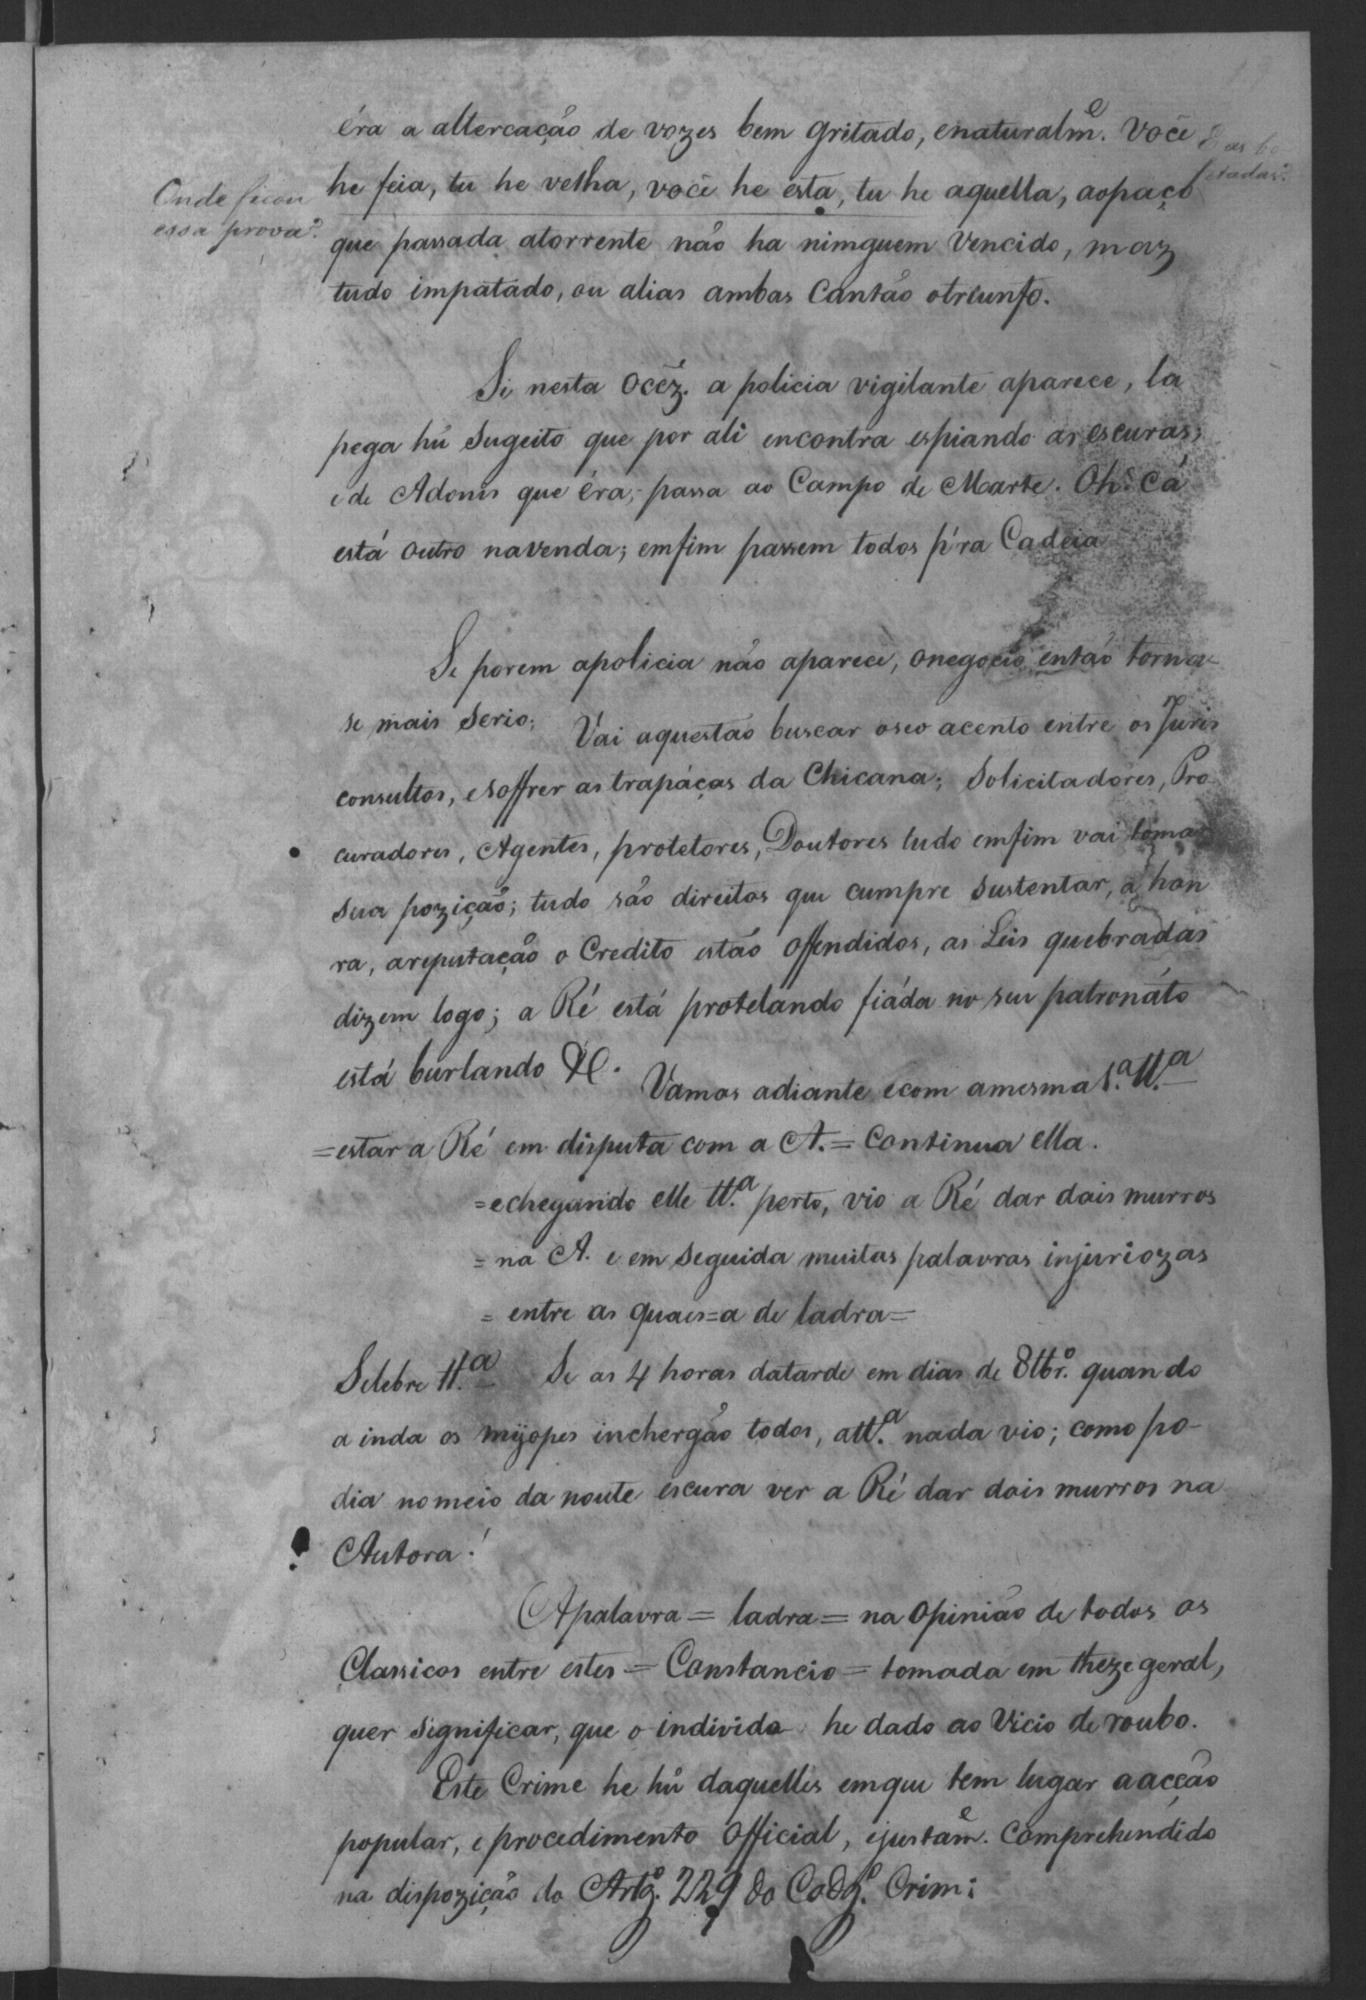 éra a altercação de vozes bem gritado, enaturalmᵉ. Você
he feia, tu he velha, você he esta, tu he aquella, aopaço
Onde ficou
essa prova?
E as bo-
fetadas?
que passada atorrente não ha nimguem Vencido, maz
tudo impatado, ou alias ambas Cantão otriunfo.
Si nesta Occz. a policia vigilante aparece, la
pega hũ Sugeito que por ali encontra espiando as escuras;
e de Adonis que éra, passa ao Campo de Marte. Oh! Cá
está outro navenda; emfim passem todos p'ra Cadeia
Se porem apolicia não aparece, onegocio então torna-
se mais Serio. Vai aquestão buscar oseo acento entre os Juris
consultos, esoffrer as trapáças da Chicana; Solicitadores, Pro-
curadores, Agentes, protetores, Doutores tudo emfim vai tomar
sua pozição; tudo são direitos que cumpre sustentar, a hon
ra, areputação o Credito estão offendidos, as Leis quebradas
dizem logo; a Ré está protelando fiáda no seu patronáto
está burlando &. Vamos adiante ecom amesma 1.ª ttª
=estar a Ré em disputa com a A.= Continua ella.
=echegando elle ttª perto, vio a Ré dar dois murros
= na A. e em Seguida muitas palavras injuriozas
= entre as quaes=a de ladra=
Selebre ttª Se as 4 horas datarde em dias de 8tbrº. quando
ainda os myopes inchergão todos, attª nada vio; como po-
dia nomeio da noute escura ver a Ré dar dois murros na
Autora!
Apalavra = ladra = na opinião de todos os
Classicos entre estes = Constancio = tomada em theze geral,
quer Significar, que o individo he dado ao Vicio de roubo.
Este Crime he hũ daquelles emque tem lugar aacção
popular, e procedimento Official, ejustamᵉ. Comprehendido
na dispozição do Artgº. 229 do Codgº. Crim: